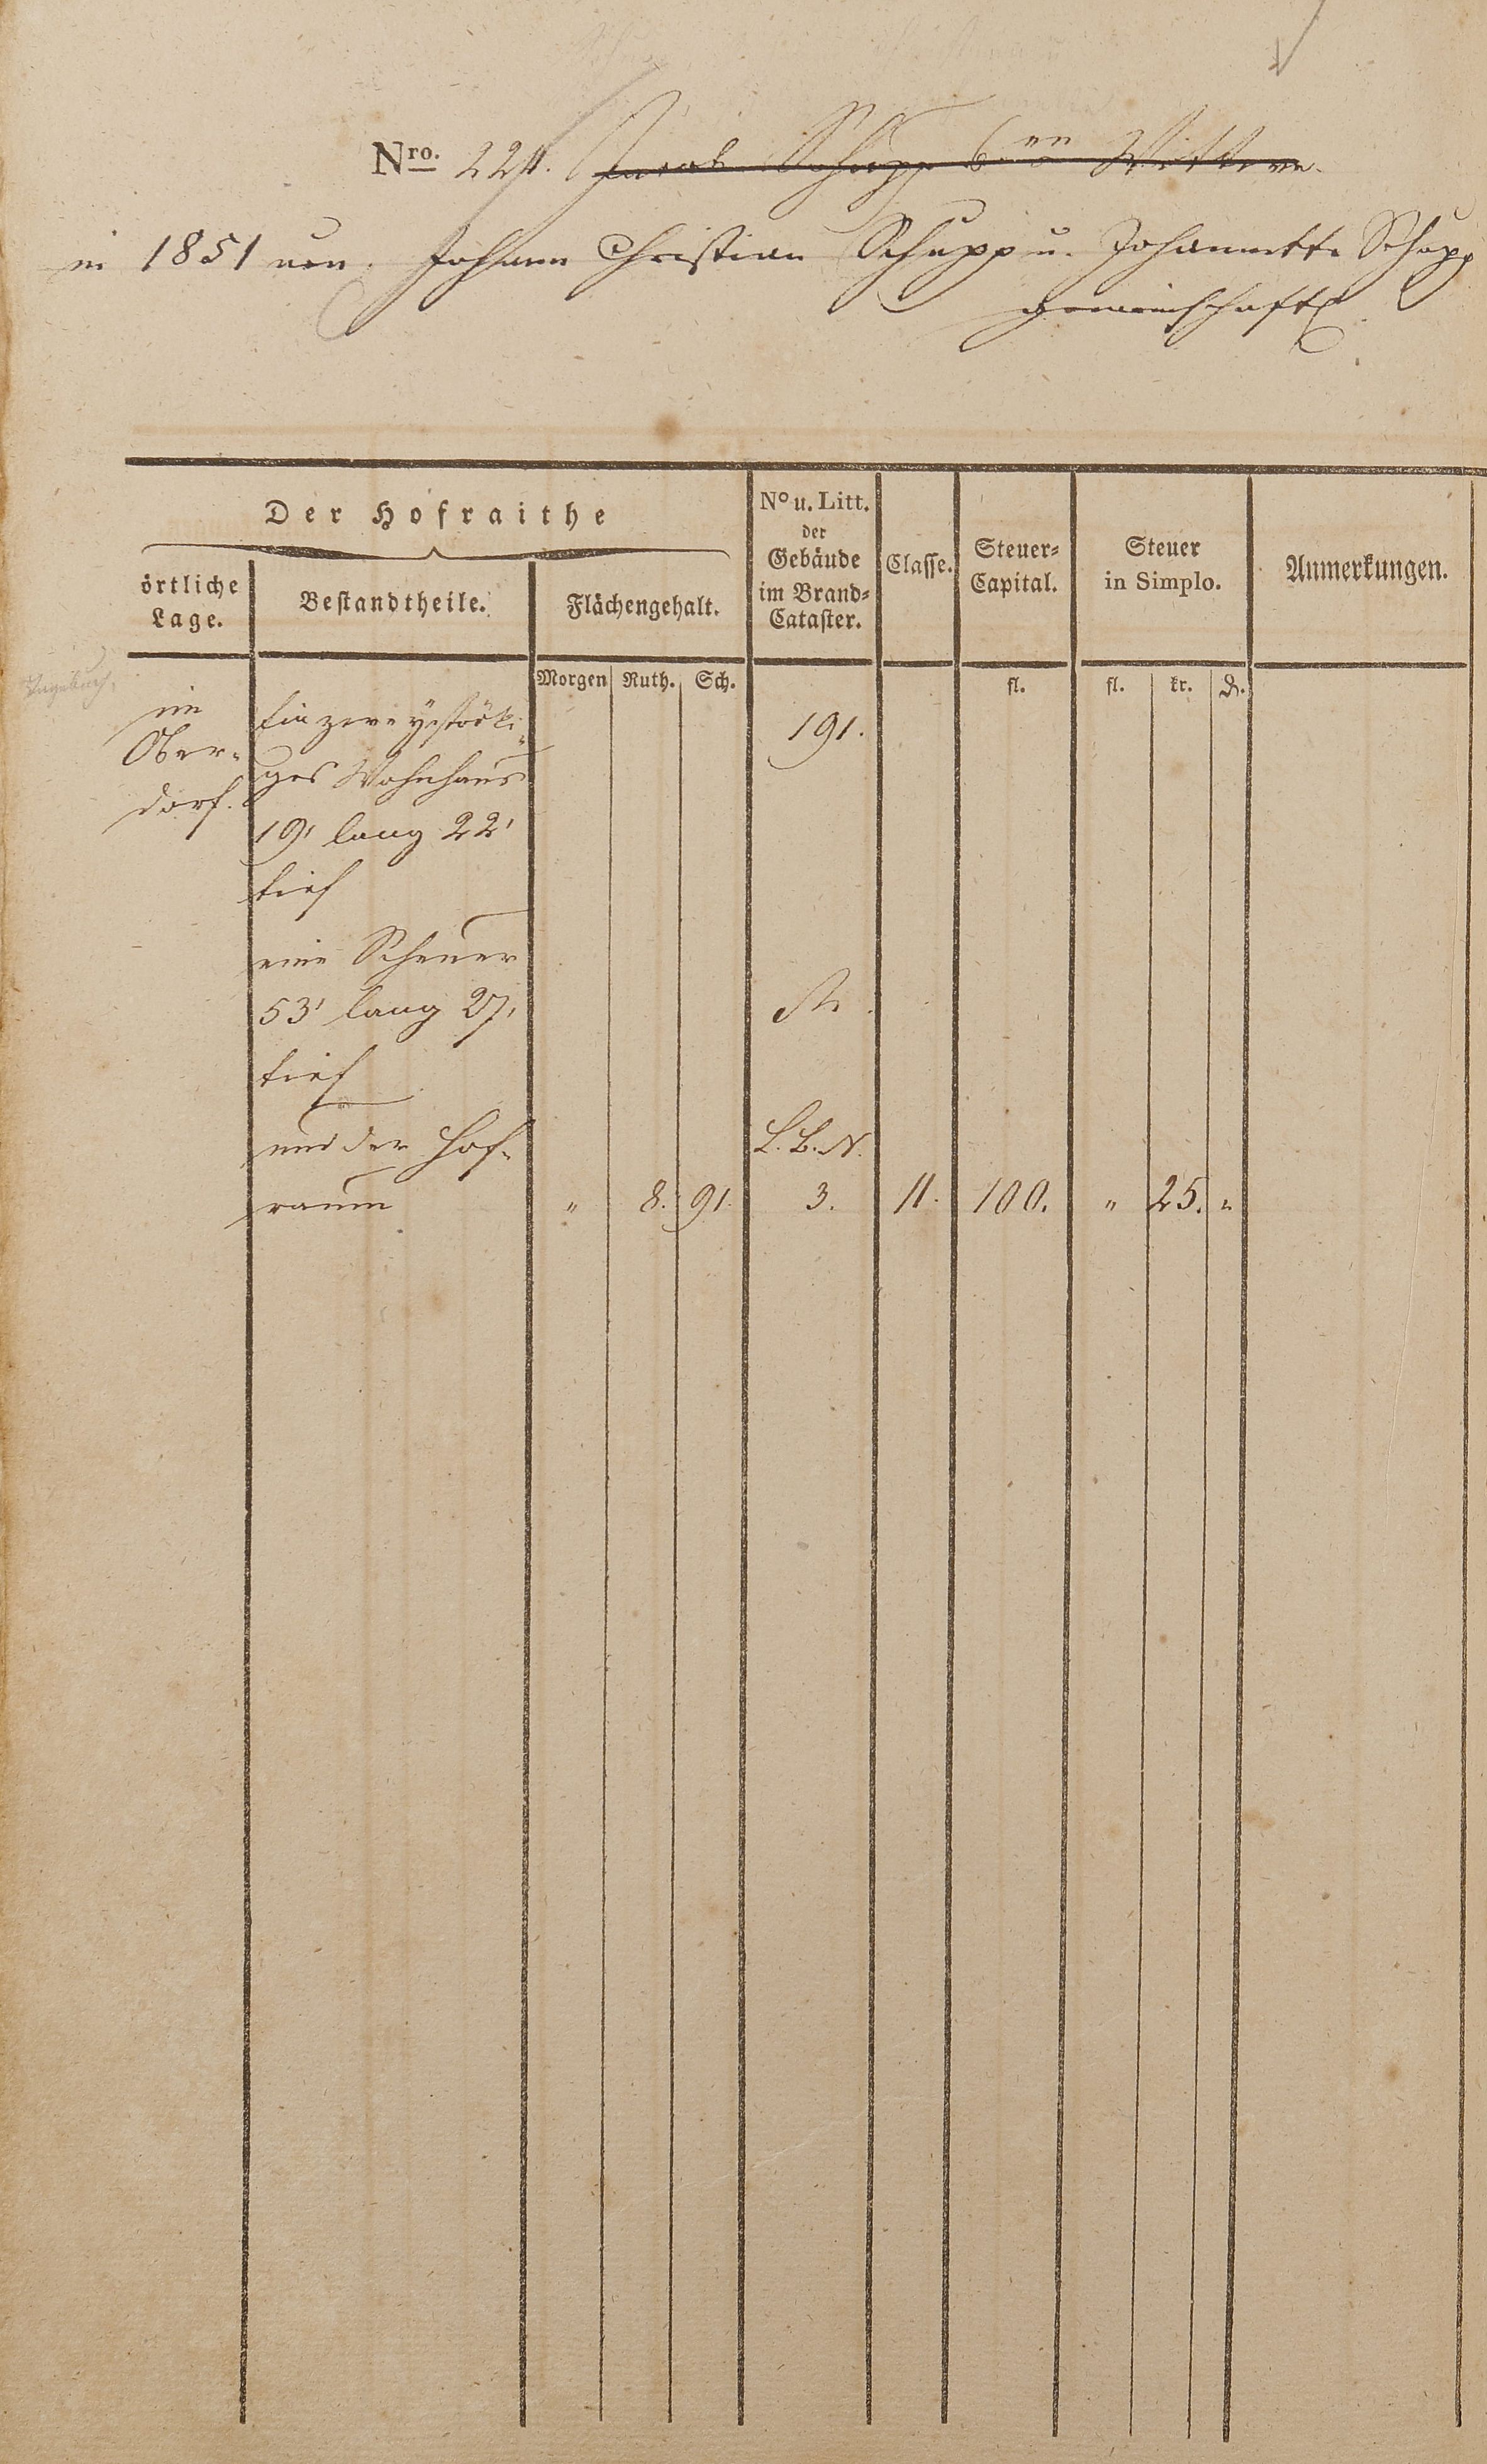 Nro. 224. Jacob Schupp 6ten Wittwe.
in 1851 von Johann Christian Schupp u. Johannette Schupp
gemeinschaftl.
Der Hofraithe
örtliche Lage.
Bestandtheile.
Flächengehalt.
No u. Litt. der Gebäude im Brand-Cataster.
Classe.
Steuer-Capital.
Steuer in Simplo.
Anmerkungen.
Morgen Ruth. Sch. fl. fl. kr. ₰.
im Ein zweystöki- 191.
Ober- ges Wohnhaus
dorf. 19' lang 22'
tief
eine Scheuer
53' lang 27'
tief
und der Hof- L. B. N.
raum " 8. 91. 3. 11. 100. " 25. "